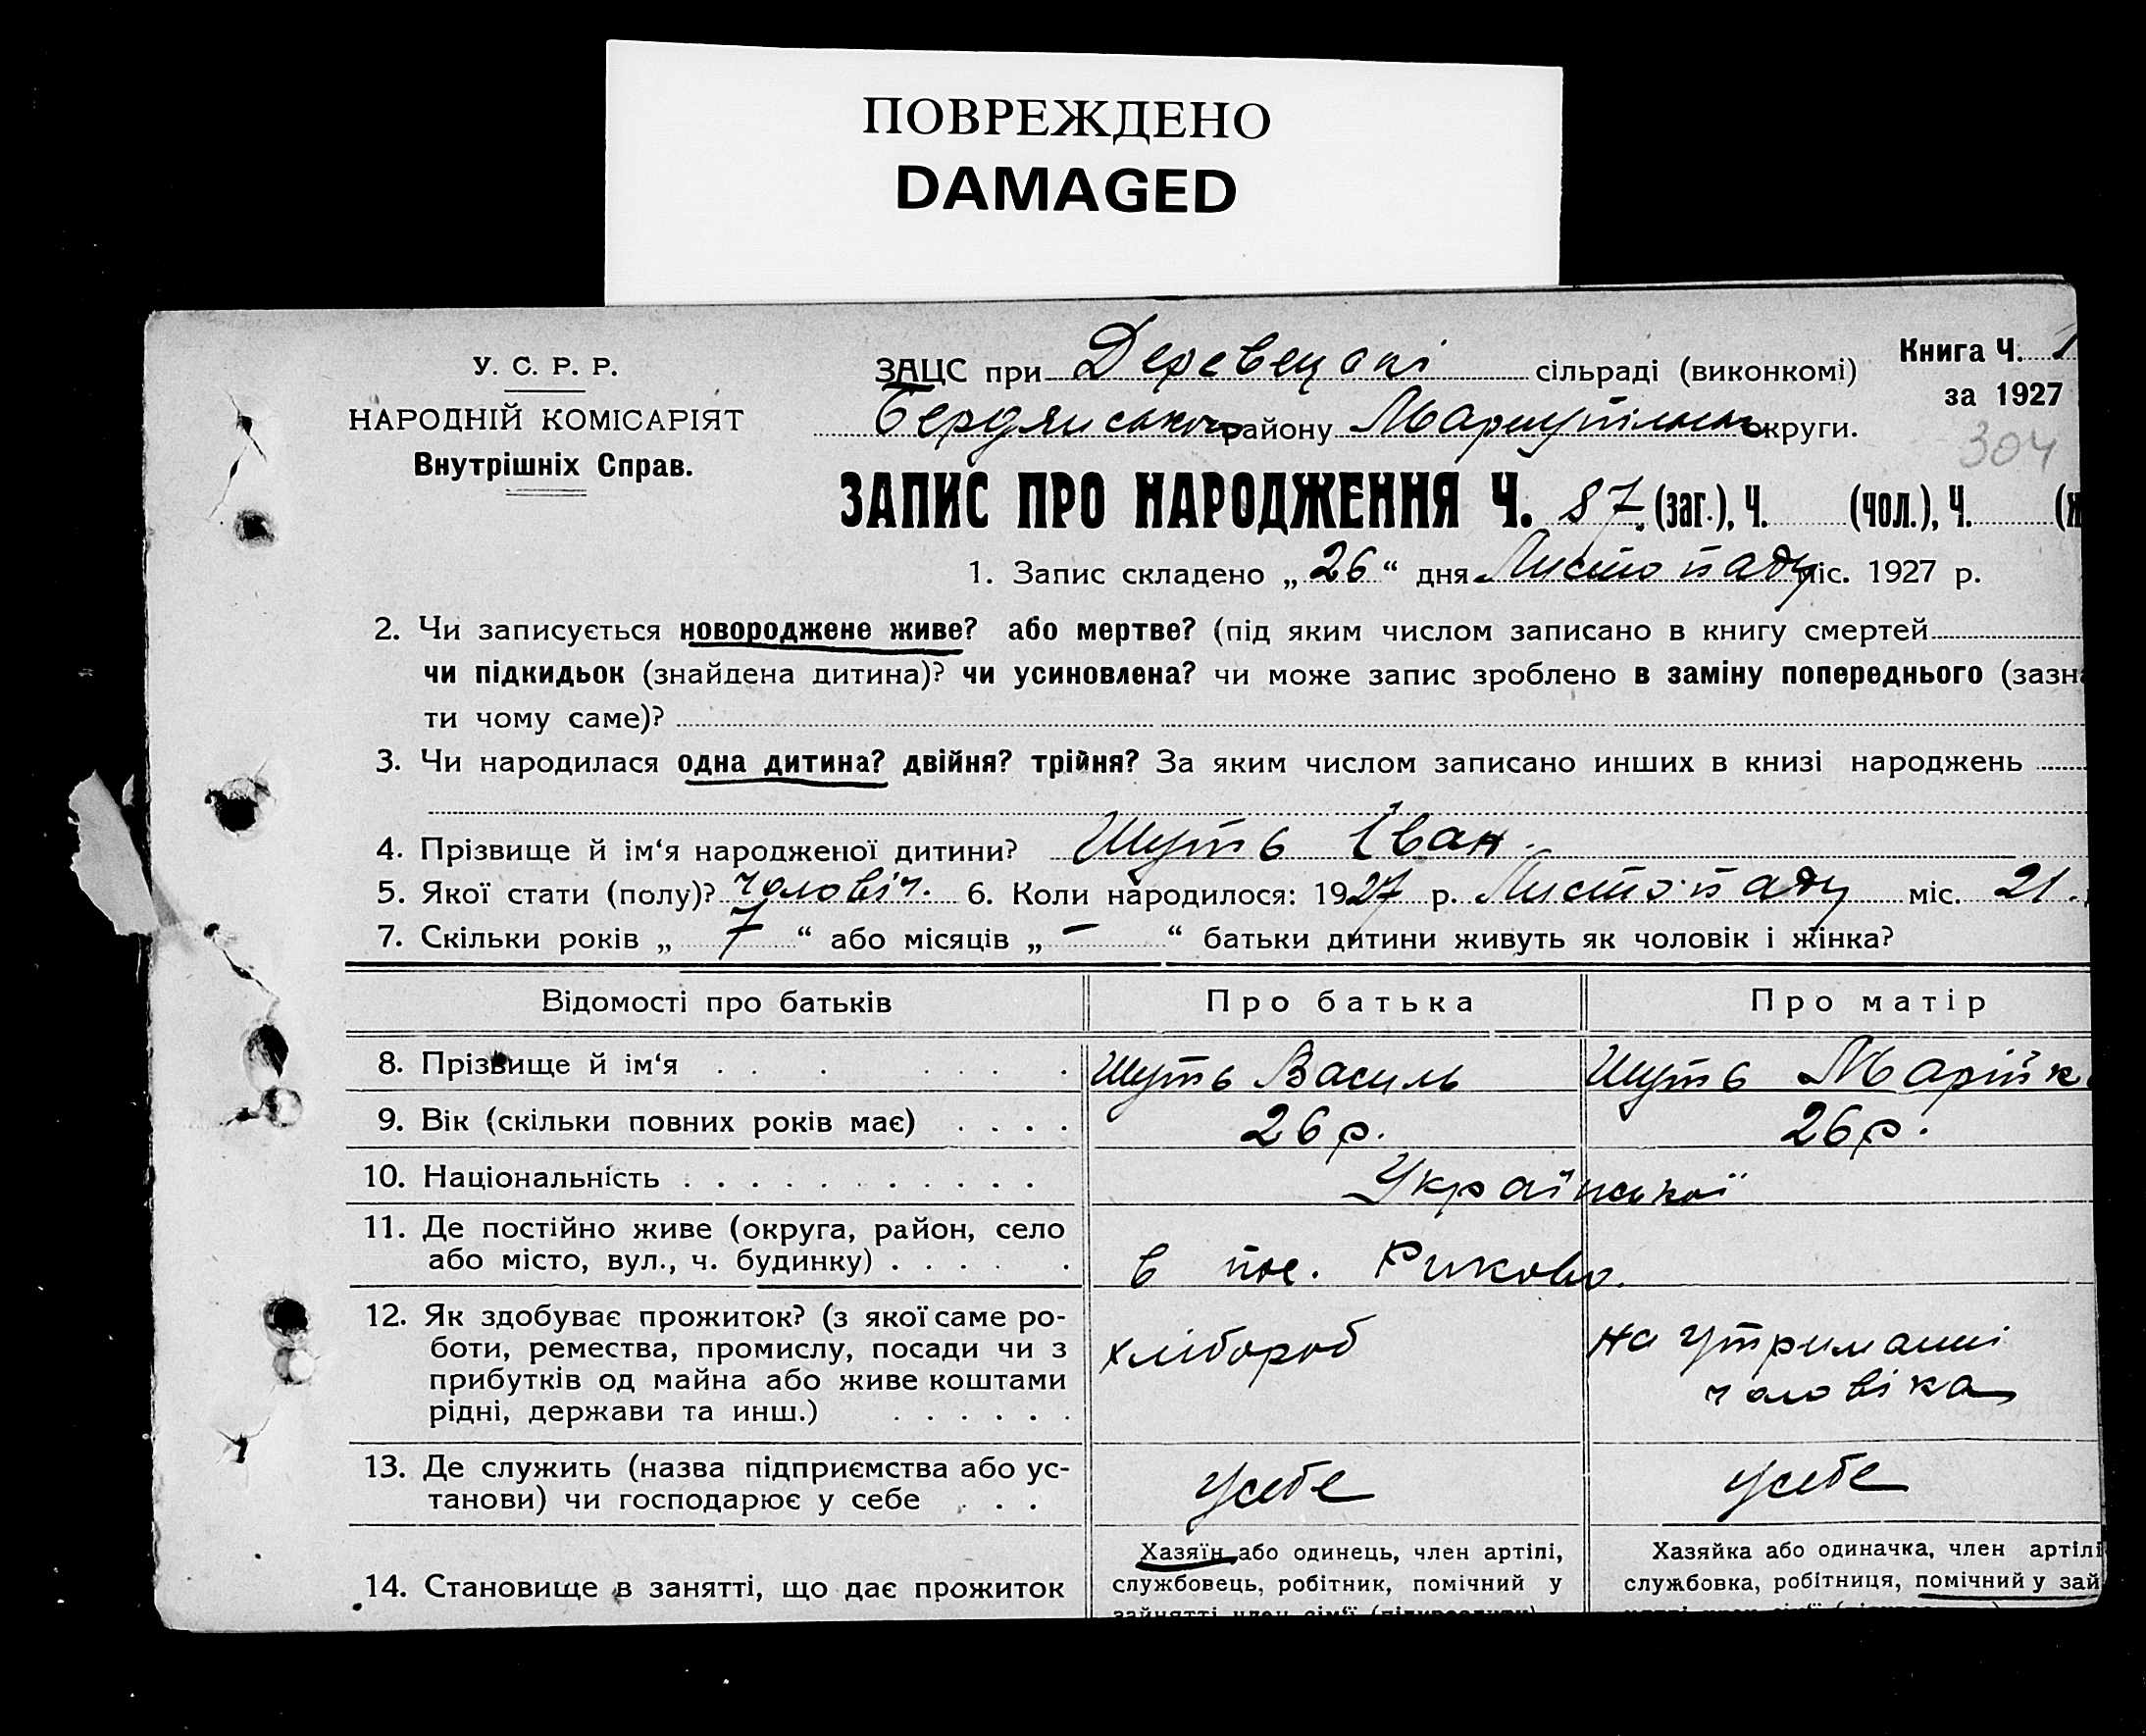 ПОВРЕЖДЕНО
DAMAGED
У. С. Р. Р.
НАРОДНІЙ КОМІСАРІЯТ
Внутрішніх Справ.
Книга Ч. 1
за 1927
304
ЗАЦС при сільраді (виконкомі)
Бердянського району Маріупільськ округи.
ЗАПИС ПРО НАРОДЖЕННЯ Ч. 87. (заг.), Ч. (чол.), Ч. (ж
1. Запис складено „ 26 “ дня Листопаду міс. 1927 р.
2. Чи записується новороджене живе? або мертве? (під яким числом записано в книгу смертей
чи підкидьок (знайдена дитина)? чи усиновлена? чи може запис зроблено в заміну попереднього (зазна
ти чому саме)?
3. Чи народилася одна дитина? двійня? трійня? За яким числом записано инших в книзі народжень
4. Прізвище й ім‘я народженої дитини? Шуть Іван.
5. Якої стати (полу)? чоловіч. 6. Коли народилося: 1927 р. Листопаду міс. 21.
7. Скільки років „ 7 “ або місяців „ – “ батьки дитини живуть як чоловік і жінка?
Відомості про батьків Про батька Про матір
8. Прізвище й ім‘я . . . . . . . Шуть Василь Шуть Марійка
9. Вік (скільки повних років має) . . . . 26 р. 26 р.
10. Національність . . . . . . . . . . . Української
11. Де постійно живе (округа, район, село
або місто, вул., ч. будинку) . . . . . в пос. Риково.
12. Як здобуває прожиток? (з якої саме ро-
боти, ремества, промислу, посади чи з
прибутків од майна або живе коштами
рідні, держави та инш.) . . . . . . хлібороб на утриманні
чоловіка
13. Де служить (назва підприємства або ус-
танови) чи господарює у себе . . . усебе усебе
14. Становище в занятті, що дає прожиток
Хазяїн або одинець, член артілі,
службовець, робітник, помічний у
зайнятті член сім‘ї (підкреслити)
Хазяйка або одиначка, член артілі
службовка, робітниця, помічний у зай